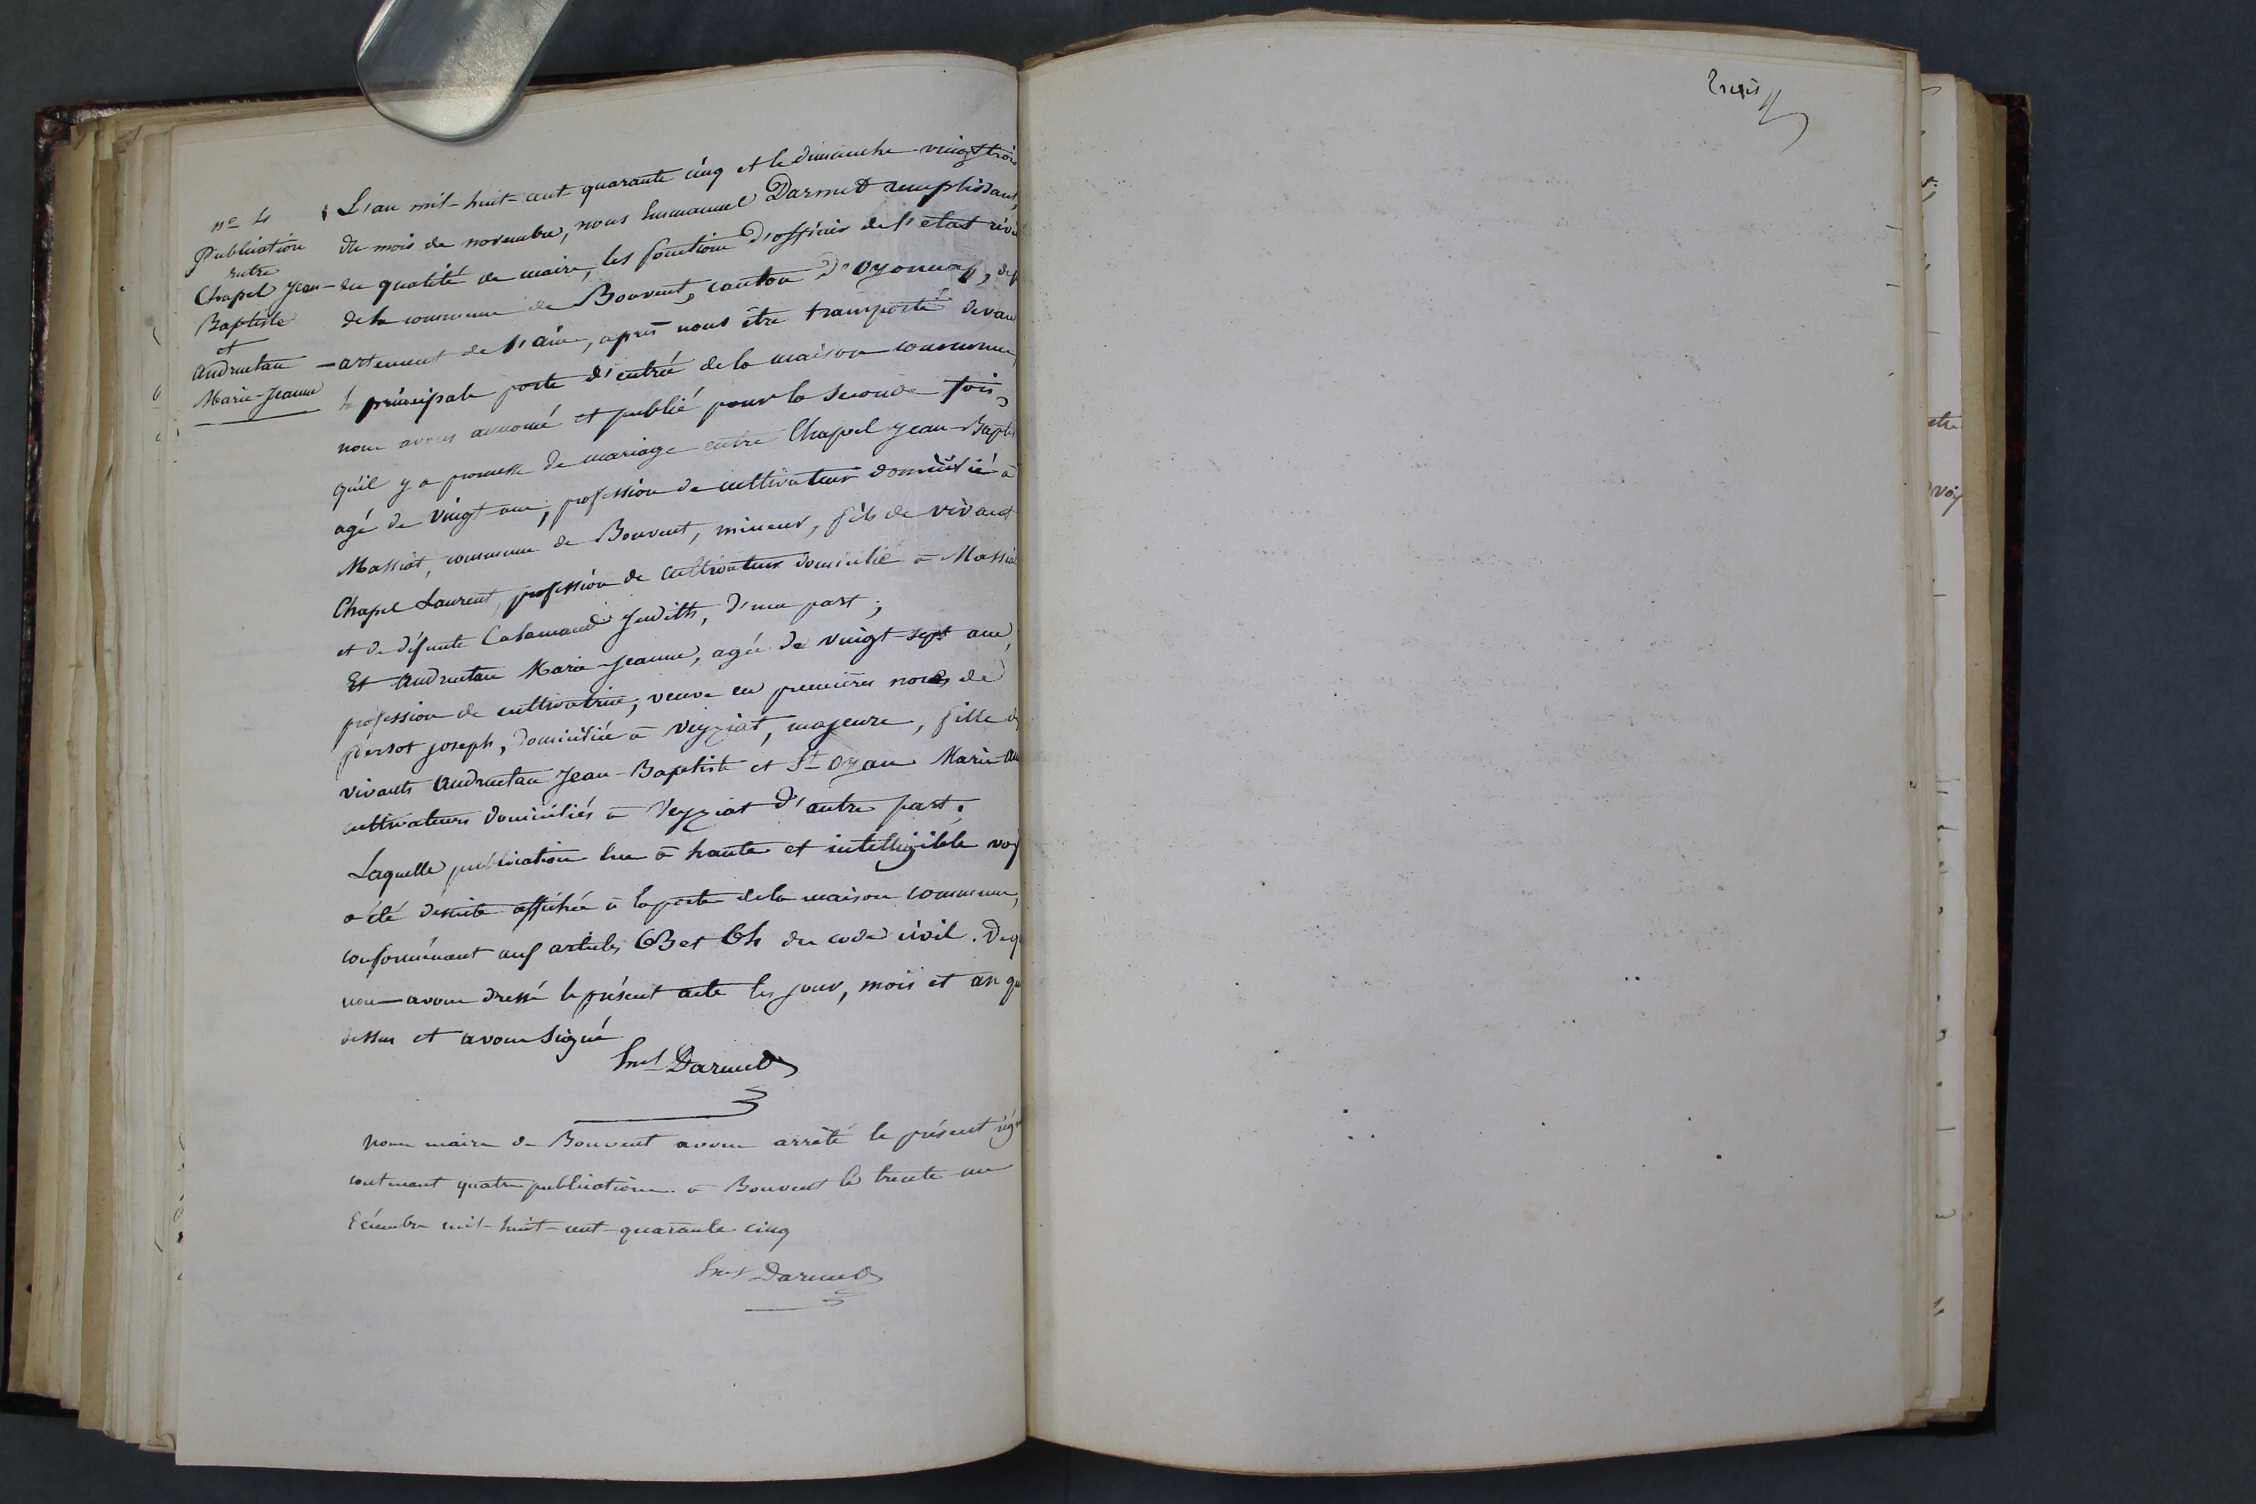 trois
n° 4
Publication
entre
Chapel Jean-
Baptiste
et
Andruetan
Marie-Jeanne
L'an mil-huit-cent-quarante cinq et le dimanche vingt trois
du mois de novembre, nous Emmanuel Darmet remplissant,
en qualité de maire, les fonctions d'officier de l'etat civil
de la commune de Bouvent, canton d'oyonnax, dép
-artement de l'ain, après nous être transporté devant
la principale porte d'entrée de la maison commune,
nous avons annoncé et publié pour la seconde fois,
qu'il y a promesse de mariage entre Chapel Jean-Baptis
agé de vingt ans, profession de cultivateur domicilié à
Massiat, commune de Bouvent, mineur, fils de vivant
Chapel Laurent, profession de cultivateur domicilié à Massiat
et de défunte Calamand Judith, d'une part;
Et Andruetan Marie-Jeanne, agée de vingt-sept ans,
profession de cultivatrice, veuve en premières noces de
persot joseph, domiciliée à veyziat, majeure, fille de
vivants Andruetan Jean-Baptiste et St oyan Marie-an
cultivateurs domiciliés à Veyziat d'autre part.
Laquelle publication lue à haute et intelligible voix
a été desuite affichée à la porte de la maison commune,
conformément aux articles 63 et 64 du code civil. De q
nous avons dressé le présent acte les jour, mois et an qu
dessus et avons signé
Em.l Darmet
Nous maire de Bouvent avons arrêté le présent régi
contenant quatre publications à Bouvent le trente un
Décembre mil-huit-cent-quarante cinq
Em.l Darmet